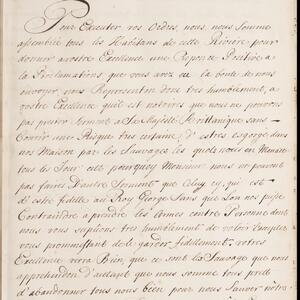 Pour Executer vos Ordres, nous, nous somme
assemblé tous les Habitans de cette Riviere pour
donner a votre Excellence une Reponce Positive a
la Proclamations que vous avez eu la bonté de nous
envoyer, nous Representon donc tres humblement, a
vostre Excellence quil est notoires que nous ne pouvons
pas prester serment a Sa Majesté Brittannique sans
Courrir une Risque tres certaine d'estres esgorgé dans
nos Maison par les Sauvages les quels nous en Menace
tous les Jour, est pourquoy Monsieur nous ne pouvont
pas faires D'autre Serment que Celuy cy, qui est
D'etre fidelle au Roy George Sans que l'on nos puisse
Contraindre a prendre les Armes contre Personne dont
nous vous suplions tres humblement de vouloir Accepter
vous prommettant de le garder fidellement, votres
Excellence verra Bien, que ce sont les Sauvage que nous
apprehendon d'autant que nous somme tous pret
d'abandonner tous nous bien pour nous Sauver notre